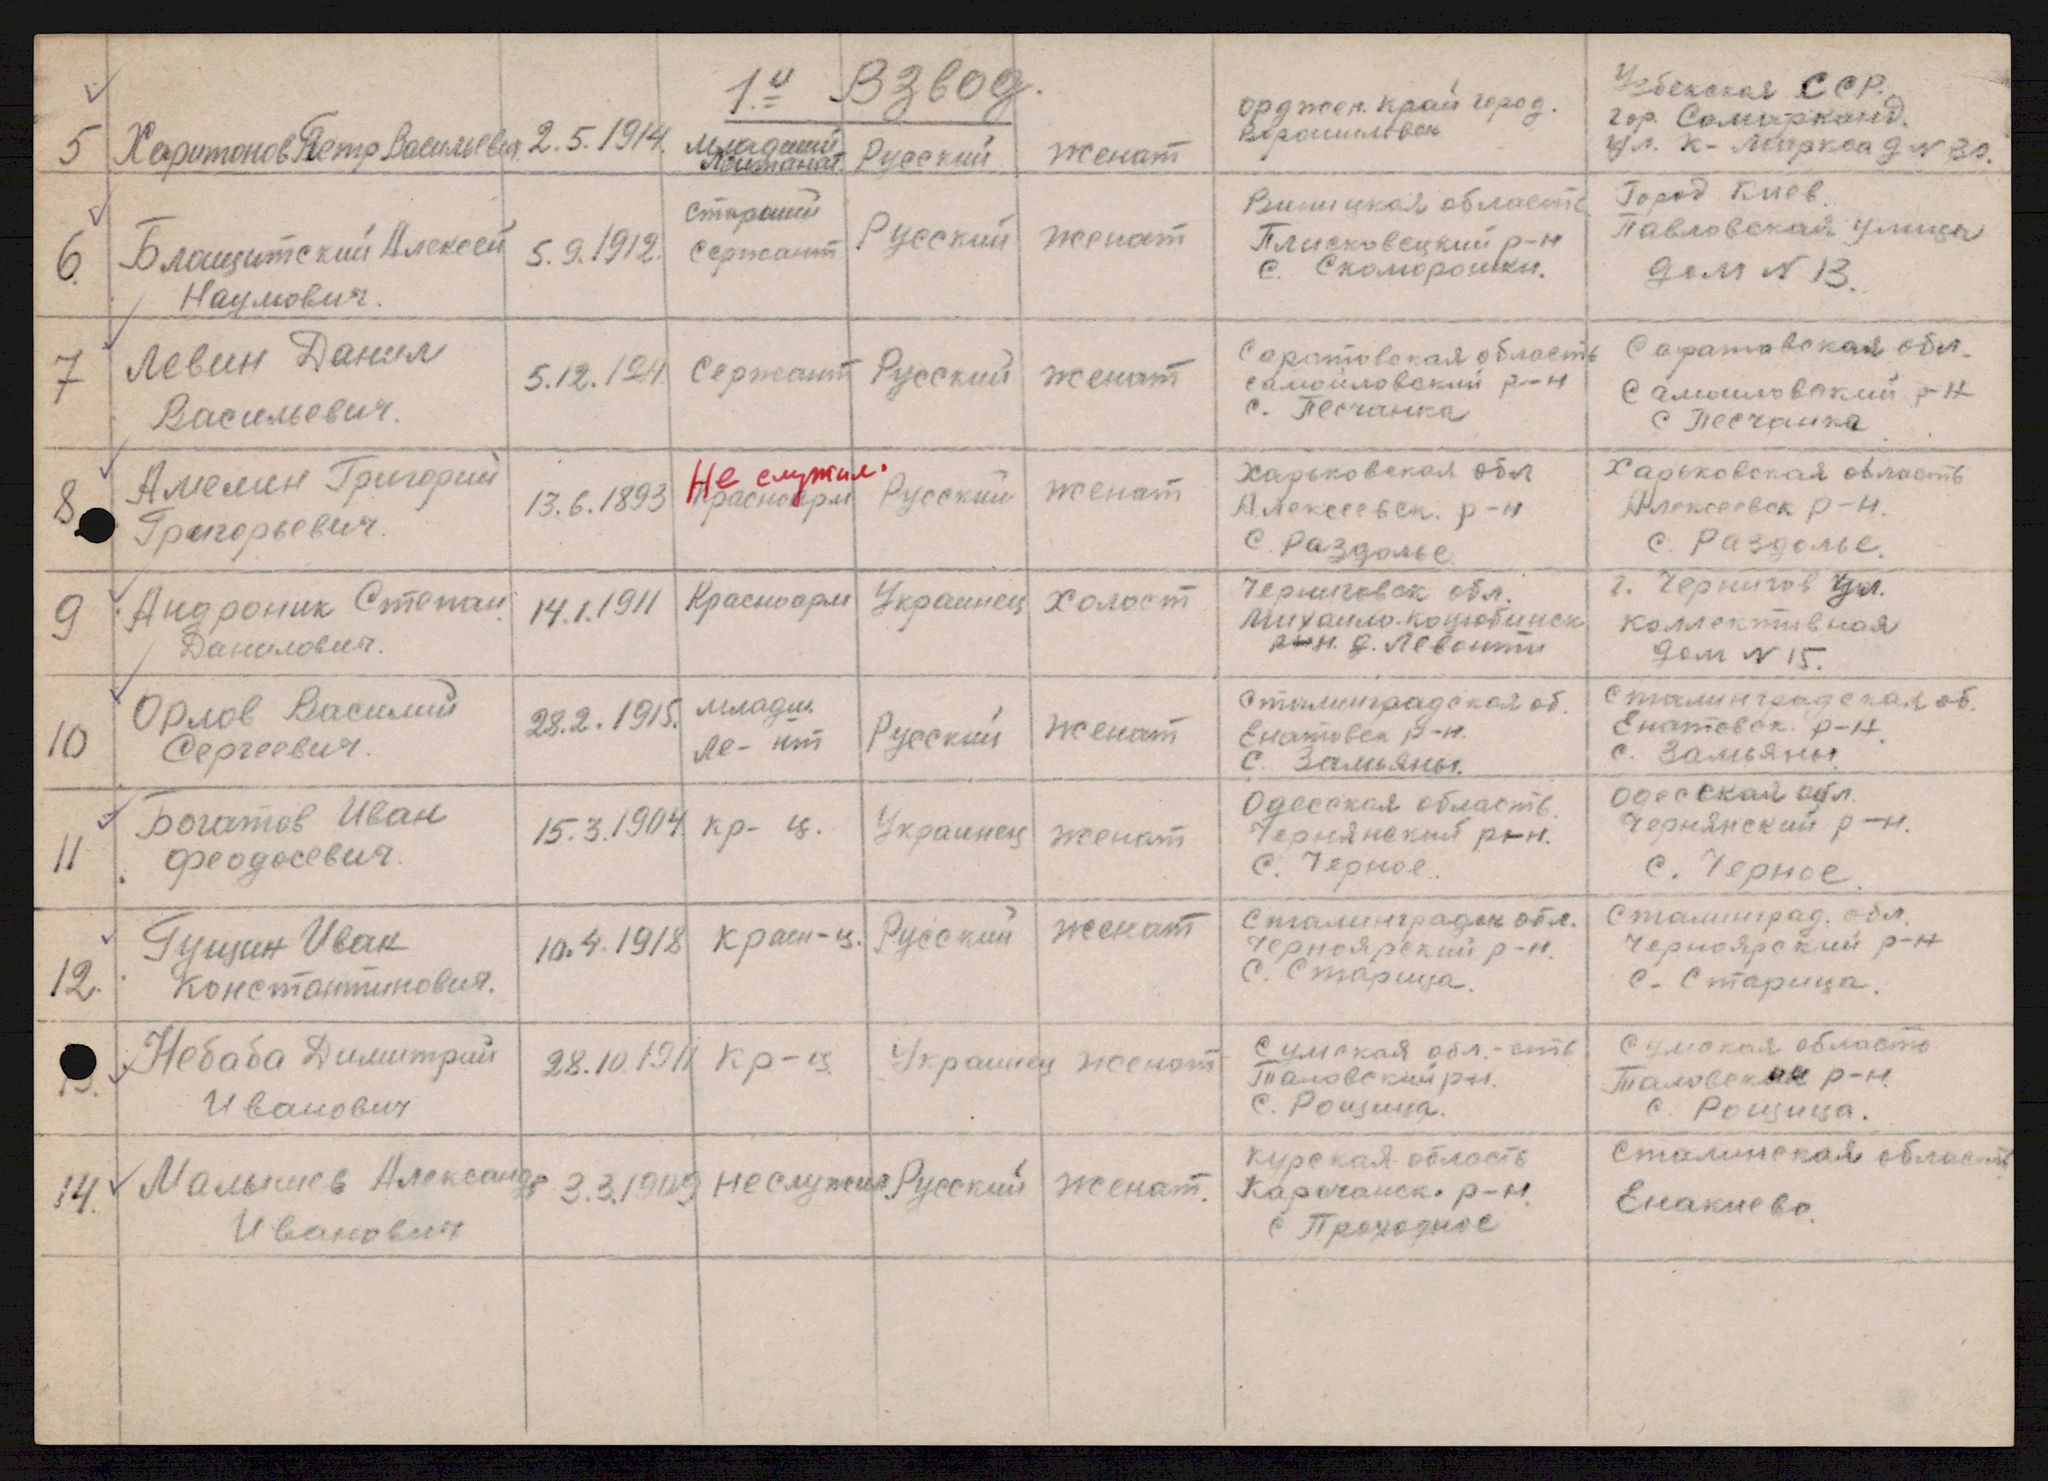 1.й Взвод.
5 Харитонов Петр Васильевич. 2.5.1914. Младший Лейтенат. Русский Женат
орджен. край город.
Ворошиловск
Узбекская ССР.
гор. Самарканд.
ул. К- Маркса д N 30.
6. Блащитский Алексей
Наумович.
5.9.1912.
старший
сержант
Русский Женат
Виницкая область
Плисковецкий р-н
с. Скоморошки.
Город Киев.
Павловская улица
дом N 13.
7 Левин Данил
Васильевич.
5.12. Сержант Русский Женат
Саратовская область
самойловский р-н
с. Песчанка
Саратовская обл.
Самойловский р-н
с Песчанка
8 Амелин Григорий
Григорьевич.
13.6.1893
Не служил.
Красноарм Русский Женат
Харьковская обл
Алексеевск. р-н
с. Раздолье
Харьковская область
Алексеевск р-н.
с. Раздолье.
9 Андроник Степан.
Данилович.
14.1.1911 Красноарм Украинец Холост
Черниговск обл.
Михайло-коцюбинск
р-н. д. Левонти
г. Чернигов ул.
коллективная
дом N 15.
10 Орлов Василий
Сергеевич.
28.2.1915.
младш.
Ле-нт
Русский Женат
Сталинградская об.
Енатовск р-н.
с. Замьяны.
Сталинградская об.
Енатовск. р-н.
с. Замьяны.
11 Богатов Иван
Феодосевич.
15.3.1904 кр-ц. Украинец женат
Одесская область.
Чернянский р-н.
с. Черное.
Одесская обл.
Чернянский р-н.
с. Черное.
12. Гущин Иван
Константинович.
10.4.1918 красн-ц. Русский женат
Сталинградск обл.
Черноярский р-н.
с. Старица.
Сталинград. обл.
Черноярский р-н
с. Старица.
13. Небаба Димитрий
Иванович
28.10.1911 Кр-ц Украинец женат
Сумская обл.-сть
Таловский р-н.
с. Рощица.
Сумская область
Таловский р-н.
с. Рощица.
14. Малышев Александр
Иванович
3.3.1909 не служил. Русский Женат.
Курская область
Карочанск. р-н.
с Проходное
Сталинская область
Енакиево.